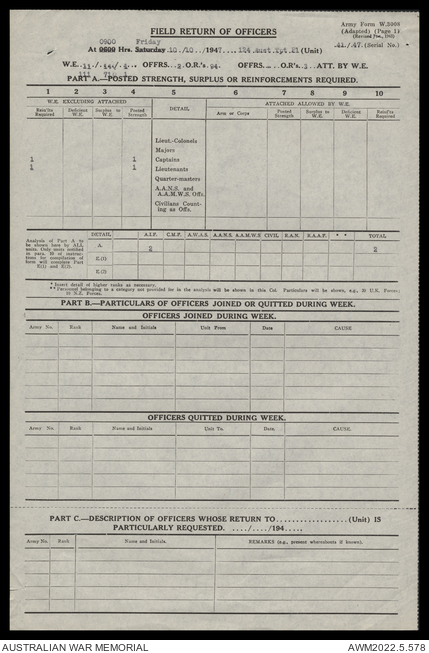 Army Form W.3008
(Adapted) (Page 1)
FIELD RETURN OF OFFICERS
0900 Friday
At 0600 Hrs. Saturday 10/10 ..1947. ..124 Aust Tpt Pl (Unit)
.41./.47.(Serial No.) *
W.E. OFFRS. 2. O.R.'s 94. OFFRS. O.R.'s ATT. BY W.E.
PART A.—POSTED STRENGTH, SURPLUS OR REINFORCEMENTS REQUIRED.
1 2 3 4 5 6 7 8 9 10
W.E. EXCLUDING ATTACHED
ATTACHED ALLOWED BY W.E.
Rein'fts Required
Deficient W.E.
Surplus to W.E.
Posted Strength
DETAIL
Arm or Corps
Posted Strength
Surplus to W.E.
Deficient W.E.
Rein'fts Required
Lieut.-Colonels
Majors
1 1 Captains
1 1 Lieutenants
Quarter-masters
A.A.N.S. and
A.A.M.W.S. Offs.
Civilians Count-
ing as Offs.
DETAIL A.I.F. C.M.F. A.W.A.S. A.A.N.S. A.A.M.W.S. CIVIL R.A.N. R.A.A.F. * * TOTAL
Analysis of Part A to
be shown here by ALL
units. Only units notified
in para. 30 of instruc-
tions for compilation of
form will complete Part
E(1) and E(2).
A. 2 2
E.(1)
E.(2)
* Insert detail of higher ranks as necessary.
** Personnel belonging to a category not provided for in the analysis will be shown in this Col. Particulars will be shown, e.g., 30 U.K. Forces;
10 N.Z. Forces.
PART B.—PARTICULARS OF OFFICERS JOINED OR QUITTED DURING WEEK.
OFFICERS JOINED DURING WEEK.
Army No. Rank Name and Initials Unit From Date CAUSE
OFFICERS QUITTED DURING WEEK.
Army No. Rank Name and Initials Unit To. Date. CAUSE.
PART C.—DESCRIPTION OF OFFICERS WHOSE RETURN TO..................(Unit) IS
PARTICULARLY REQUESTED. ..../..../194....
Army No. Rank Name and Initials. REMARKS (e.g., present whereabouts if known).
AUSTRALIAN WAR MEMORIAL
AWM2022.5.578